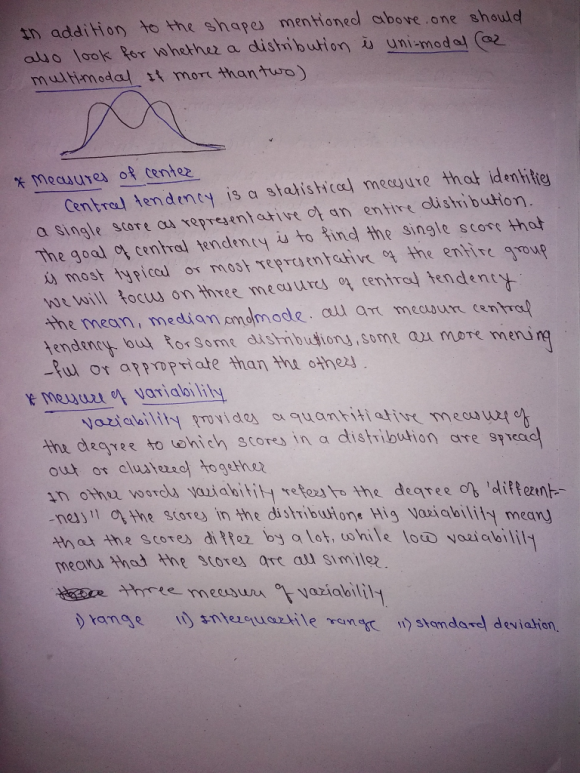 In addition to the shapes mentioned above. one should
also look for whether a distribution is uni-modal (or
multimodal if more than two)
* Measures of center
Central tendency is a statistical measure that identifies
a single score as representative of an entire distribution.
The goal of central tendency is to find the single score that
is most typical or most representative of the entire group
we will focus on three measures of central tendency.
the mean, median and mode. all are measure central
tendency but for some distributions, some are more mening
-ful or appropriate than the others.
* Mesure of Variability
Variability provides a quantitiative measure of
the degree to which scores in a distribution are spread
out or clustered together
In other words variability refers to the degree of 'differnt-
-ness" of the scores in the distribution. Hig variability means
that the scores differ by a lot, while low variability
means that the scores are all similer.
three measure of variability
i) range ii) Interquartile range ii) standard deviation.